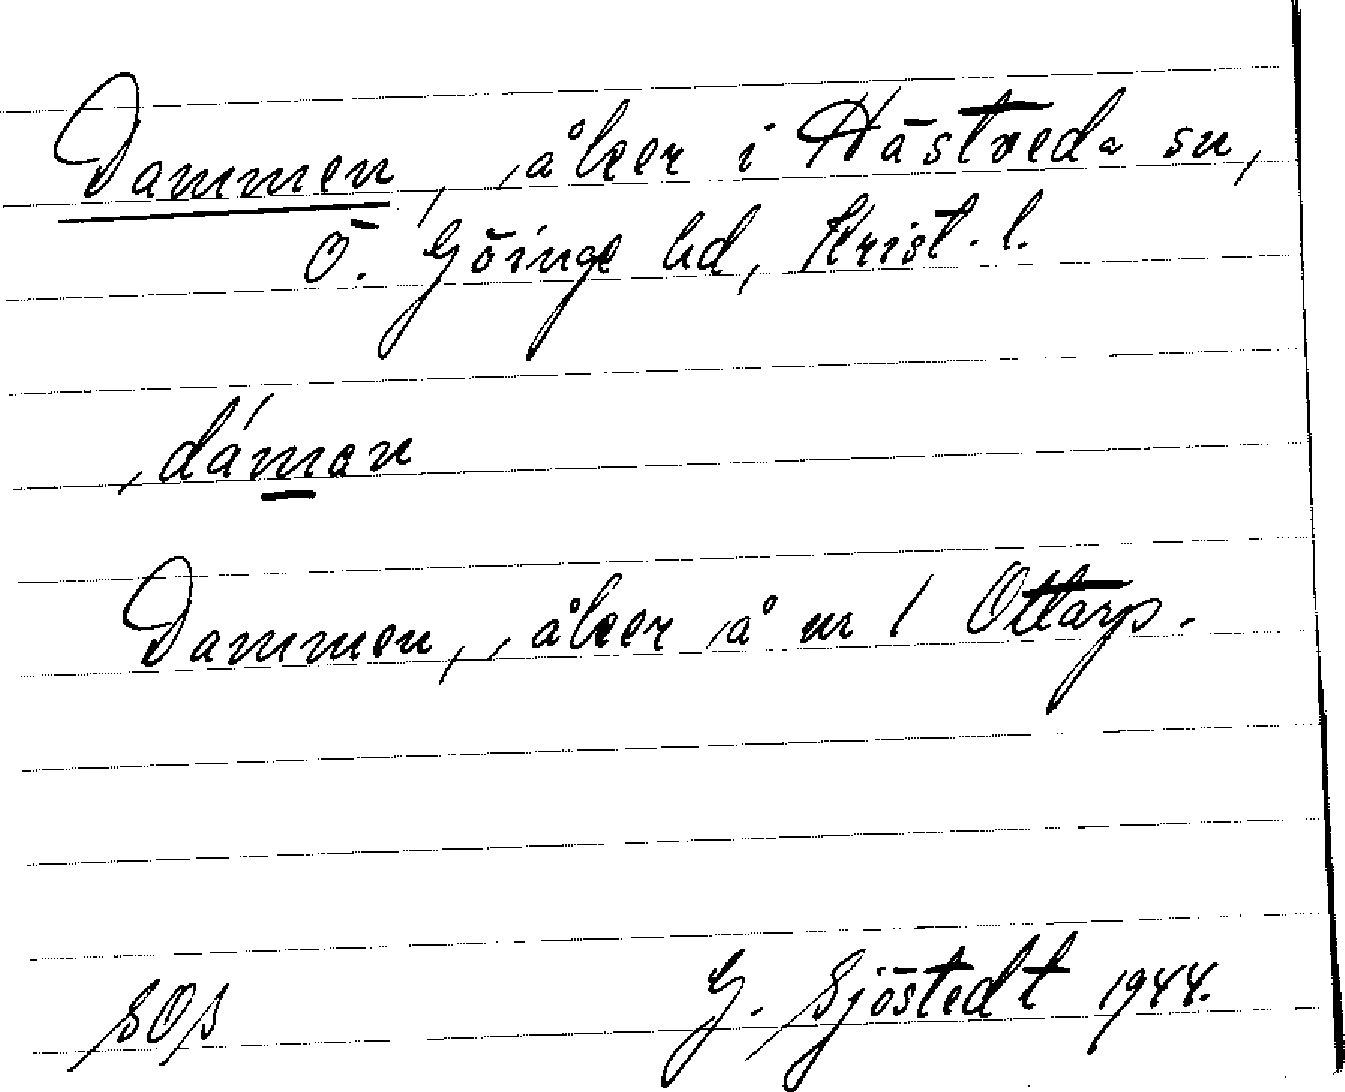 Dammen, åker i Hästveda sn,
Ö. Göinge hd, Krist. l.
dáman
Dammen, åker å nr 1 Ottarp.
SOS G. Sjöstedt 1944.